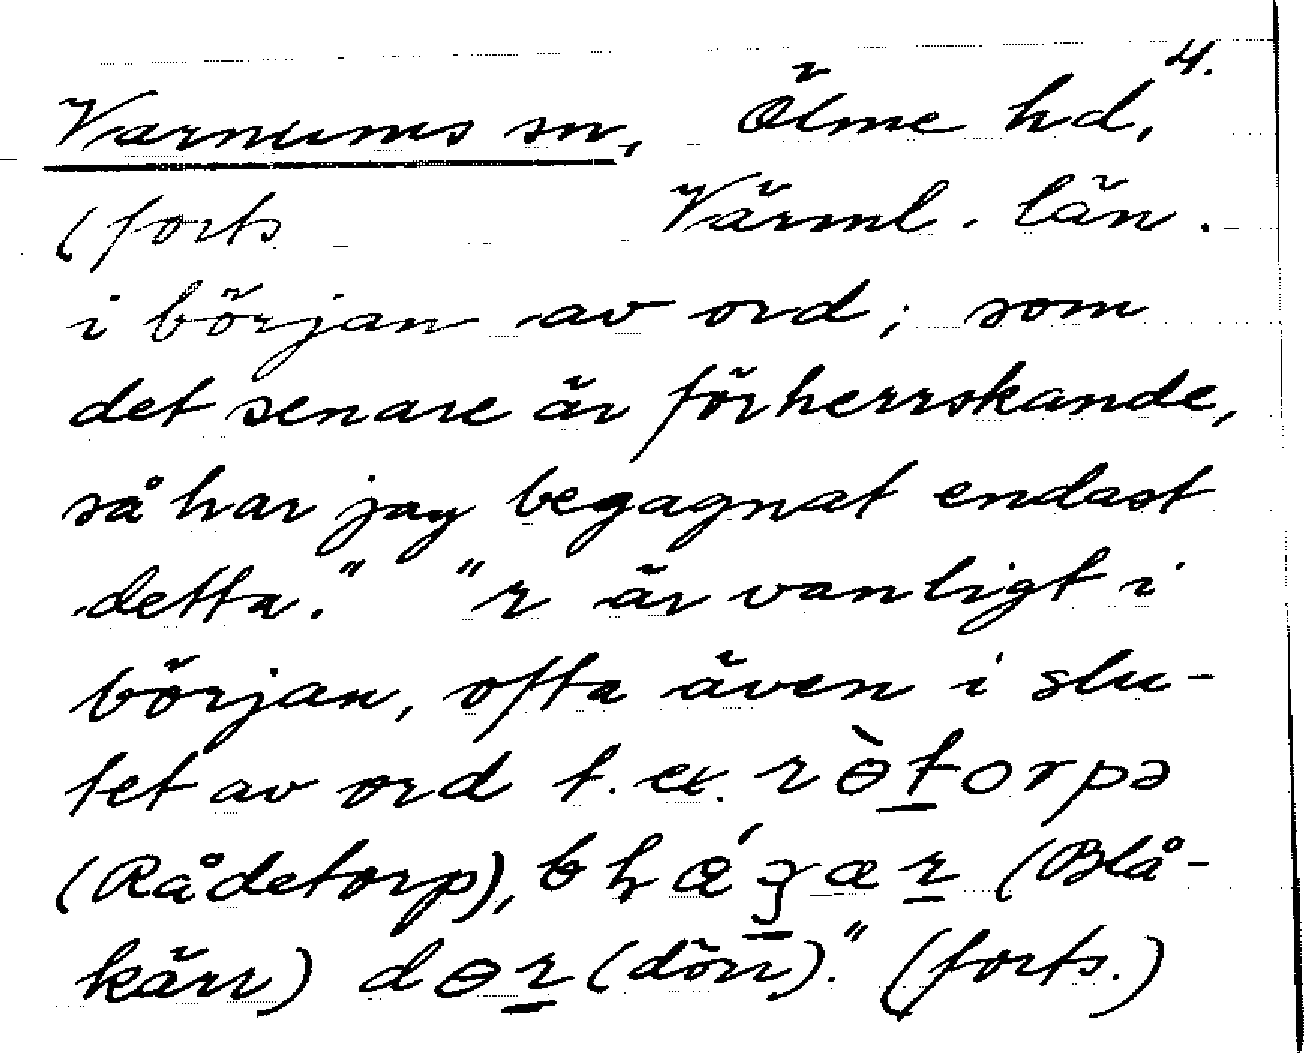 4.
Varnums sn, Ölme hd,
(forts Värml. län.
i början av ord; som
det senare är förherrskande,
så har jag begagnat endast
detta." "r är vanligt i
början, ofta även i slu-
tet av ord t. ex. rɵ̀torpə
(Rådetorp), (Blå-
kärr) dɵr (dörr)." (forts.)